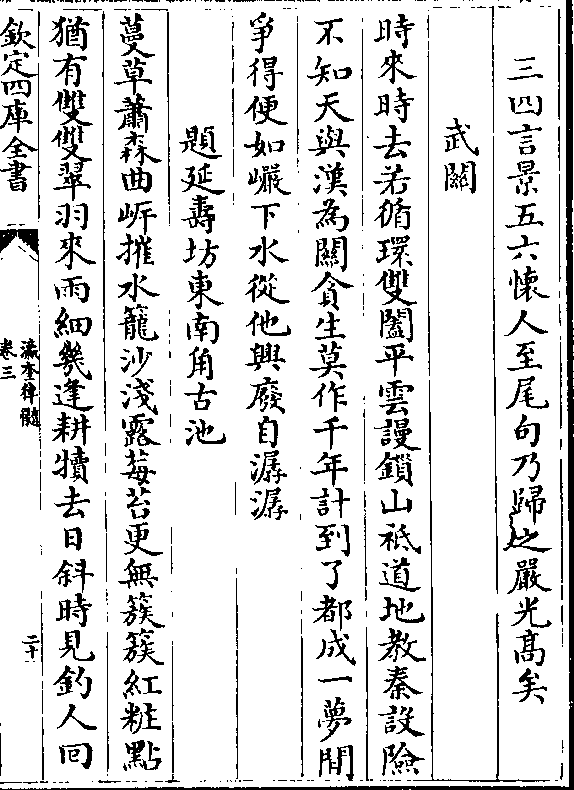 三四言景五六懷人至尾句乃歸之嚴光髙矣
武關
時來時去若循環雙闔平雲謾鎖山祗道地教秦設險
不知天與漢為關貪生莫作千年計到了都成一夢閒
爭得便如巖下水從他興廢自潺潺
題延壽坊東南角古池
蔓草蕭森曲岸摧水籠沙淺露莓苔更無簇簇紅粧點
猶有雙雙翠羽來雨細幾逢耕犢去日斜時見釣人回
欽定四庫全書
瀛奎律髓
卷三
二十